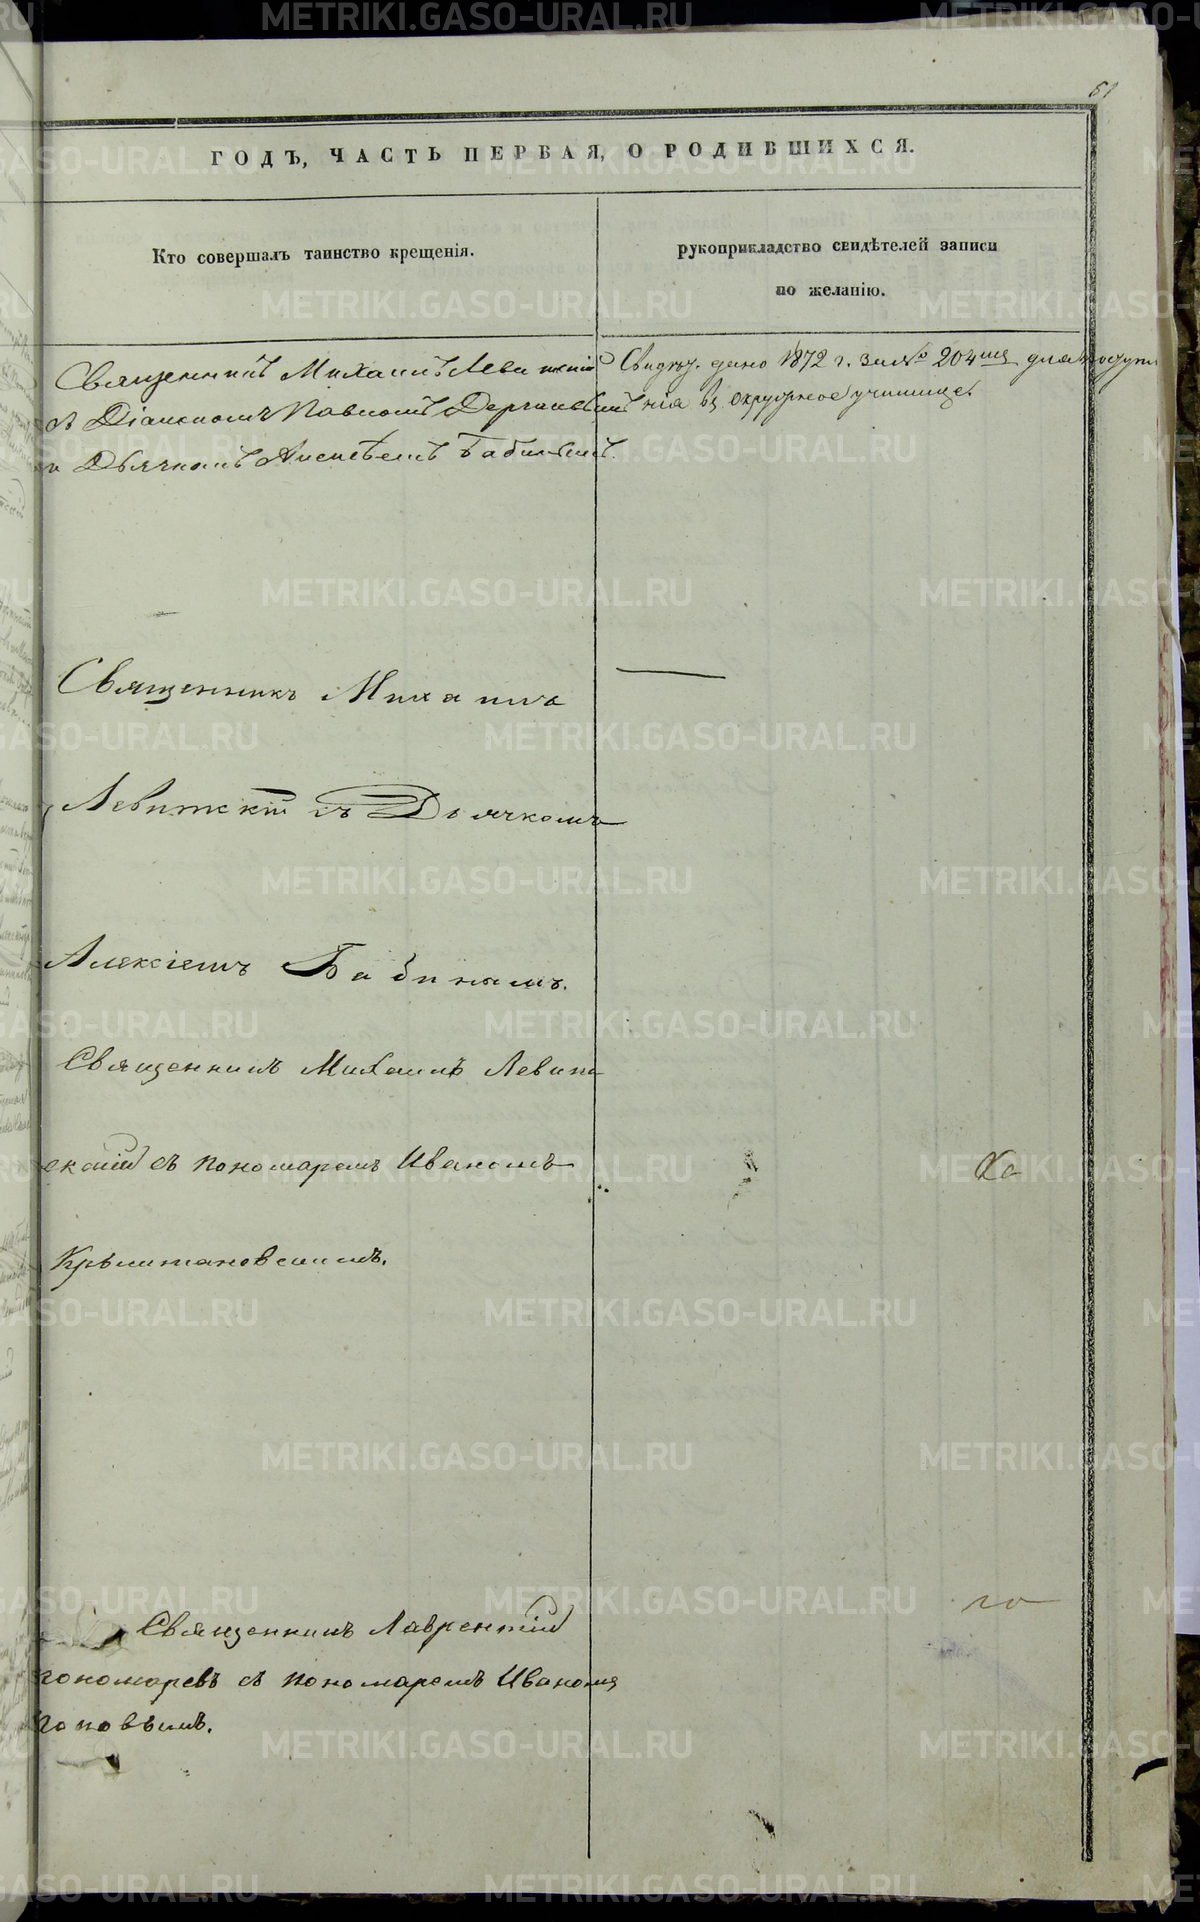 61
ГОДЪ, ЧАСТЬ ПЕРВАЯ, О РОДИВШИХСЯ.
Кто совершалъ таинство крещенія.
рукоприкладство свидѣтелей записи
по желанію.
Священникъ Михаилъ Левитскій
съ Діакономъ Павломъ
и Дьячкомъ Алексѣемъ Бабинымъ.
Свидѣт. дано 1872 г. за № 204 для поступле
нія въ окружное училище.
Священникъ Михаилъ
Левитскій съ Дьячкомъ
Алексіемъ Бабинымъ.
Священникъ Михаилъ Левит
скій съ пономаремъ Иваномъ
Крыштановскимъ.
Священникъ Лаврентій
Пономаревъ съ пономаремъ Иваномъ
Поповымъ.
METRIKI.GASO-URAL.RU